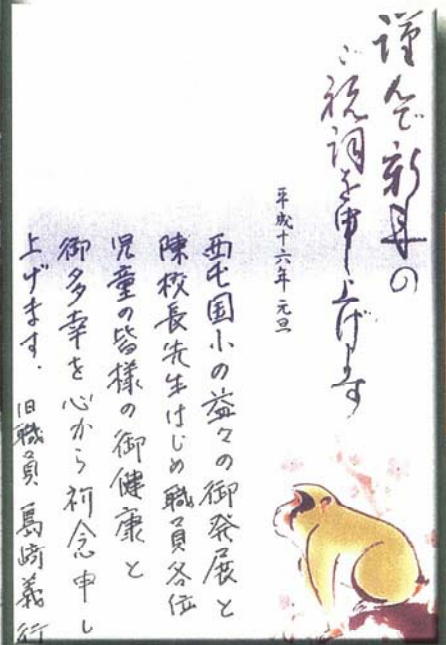 謹んで新年の
ご祝詞を申し上げます
平成十六年 元旦
西屯国小の益々の御発展と
陳校長先生はじめ職員各位
児童の皆様の御健康と
御多幸を心から祈念申し
上げます.
旧職員 島崎義行